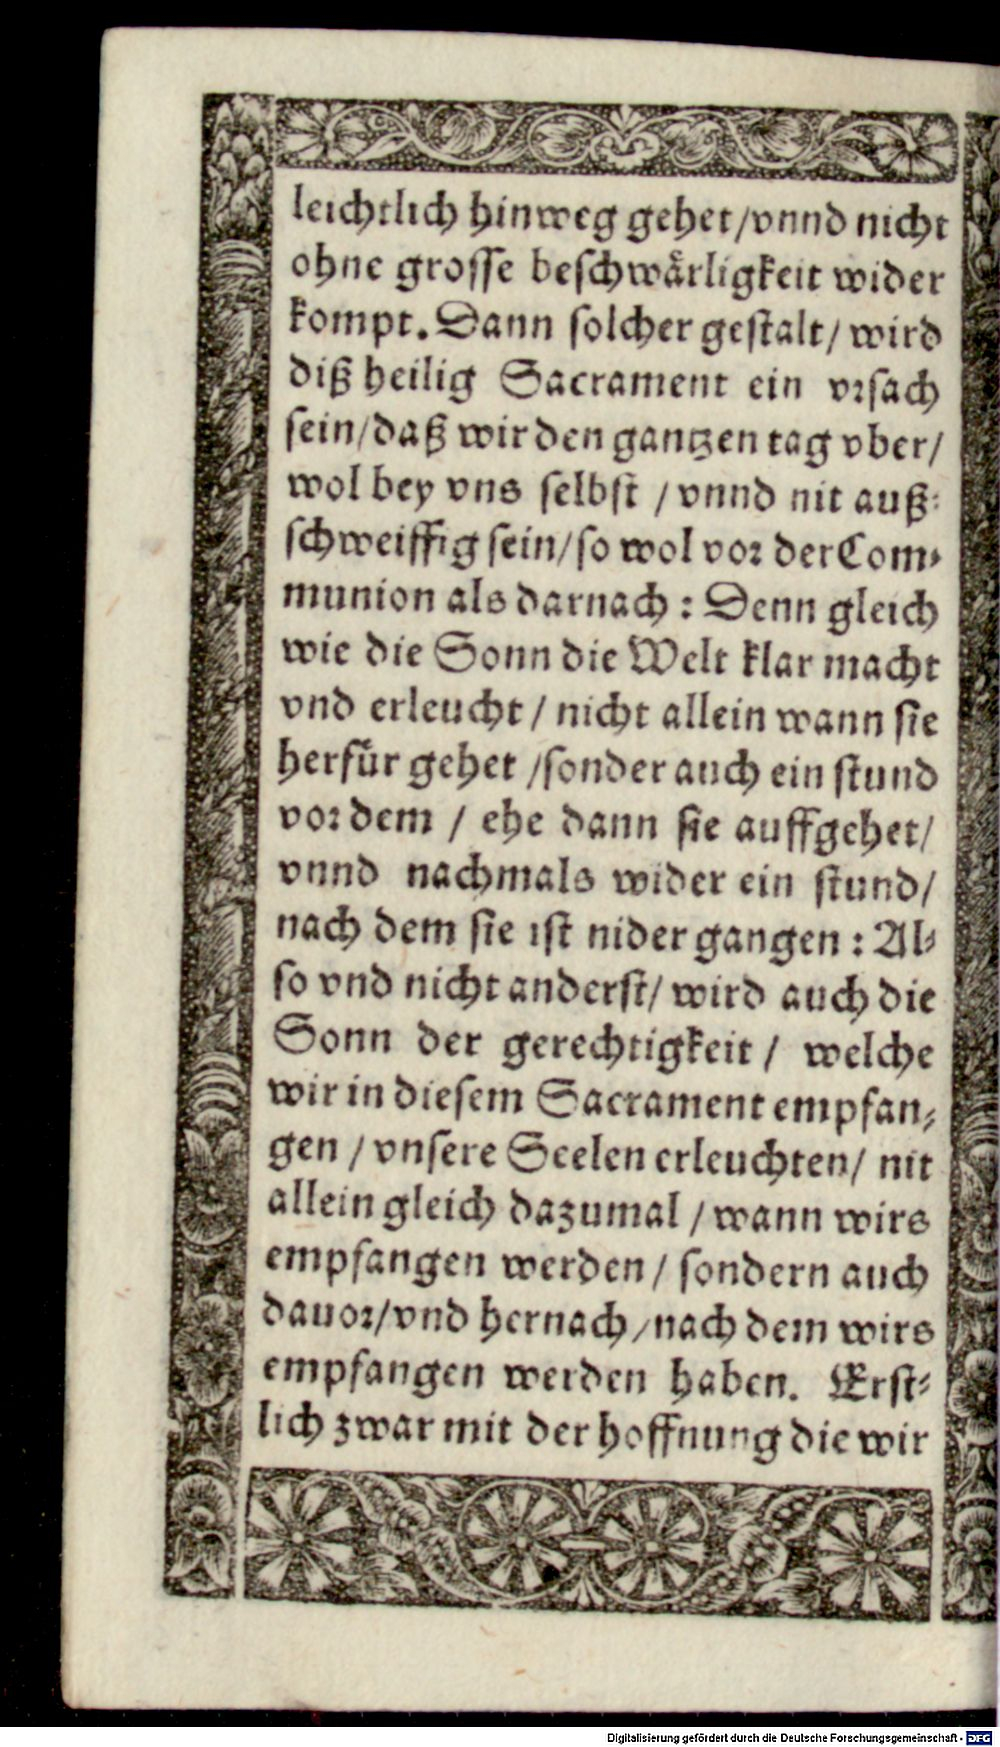 leichtlich hinweg gehet/vnnd nicht
ohne grosse beschwärligkeit wider
kompt. Dann solcher gestalt/ wird
diß heilig Sacrament ein vrsach
sein/daß wir den gantzen tag vber/
wol bey vns selbst / vnnd nit auß-
schweiffig sein/so wol vor der Com-
munion als darnach : Denn gleich
wie die Sonn die Welt klar macht
vnd erleucht / nicht allein wann sie
herfür gehet /sonder auch ein stund
vor dem / ehe dann sie auffgehet/
vnnd nachmals wider ein stund/
nach dem sie ist nider gangen : Al-
so vnd nicht anderst/ wird auch die
Sonn der gerechtigkeit / welche
wir in diesem Sacrament empfan-
gen / vnsere Seelen erleuchten/ nit
allein gleich dazumal / wann wirs
empfangen werden / sondern auch
dauor/vnd hernach/nach dem wirs
empfangen werden haben. Erst-
lich zwar mit der hoffnung die wir
Digitalisierung gefördert durch die Deutsche Forschungsgemeinschaft - DFG